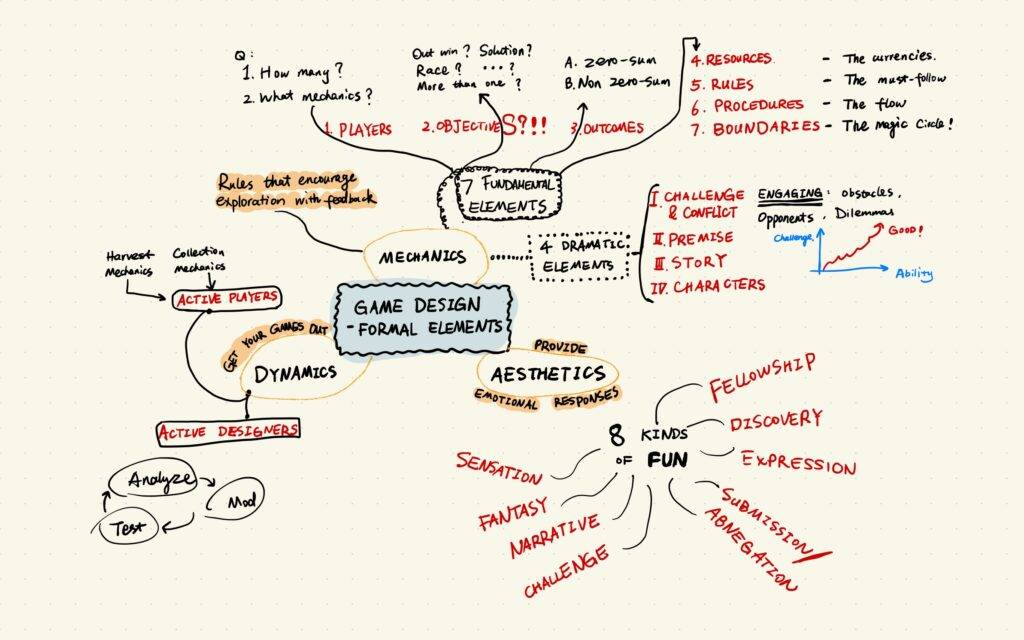 Q:
1. How many?
2. What mechanics?
Out win? Solution?
Race? ...?
More than one?
A. zero-sum
B. Non zero-sum
1. PLAYERS
2. OBJECTIVES?!!!
3. OUTCOMES
4. RESOURCES - The currencies.
5. RULES - The must-follow
6. PROCEDURES - The flow
7. BOUNDARIES - The magic Circle!
7 FUNDAMENTAL
ELEMENTS
Rules that encourage
exploration with feedback
MECHANICS
4 DRAMATIC
ELEMENTS
I. CHALLENGE
& CONFLICT
ENGAGING: obstacles,
Opponents, Dilemmas
II. PREMISE
III. STORY
IV. CHARACTERS
Challenge
Good!
Ability
Harvest
Mechanics
Collection
mechanics
ACTIVE PLAYERS
GAME DESIGN
- FORMAL ELEMENTS
GET YOUR GAMES OUT
DYNAMICS
ACTIVE DESIGNERS
Analyze
Mod
Test
PROVIDE
AESTHETICS
EMOTIONAL RESPONSES
8 KINDS
OF FUN
FELLOWSHIP
DISCOVERY
EXPRESSION
SUBMISSION/
ABNEGATION
SENSATION
FANTASY
NARRATIVE
CHALLENGE